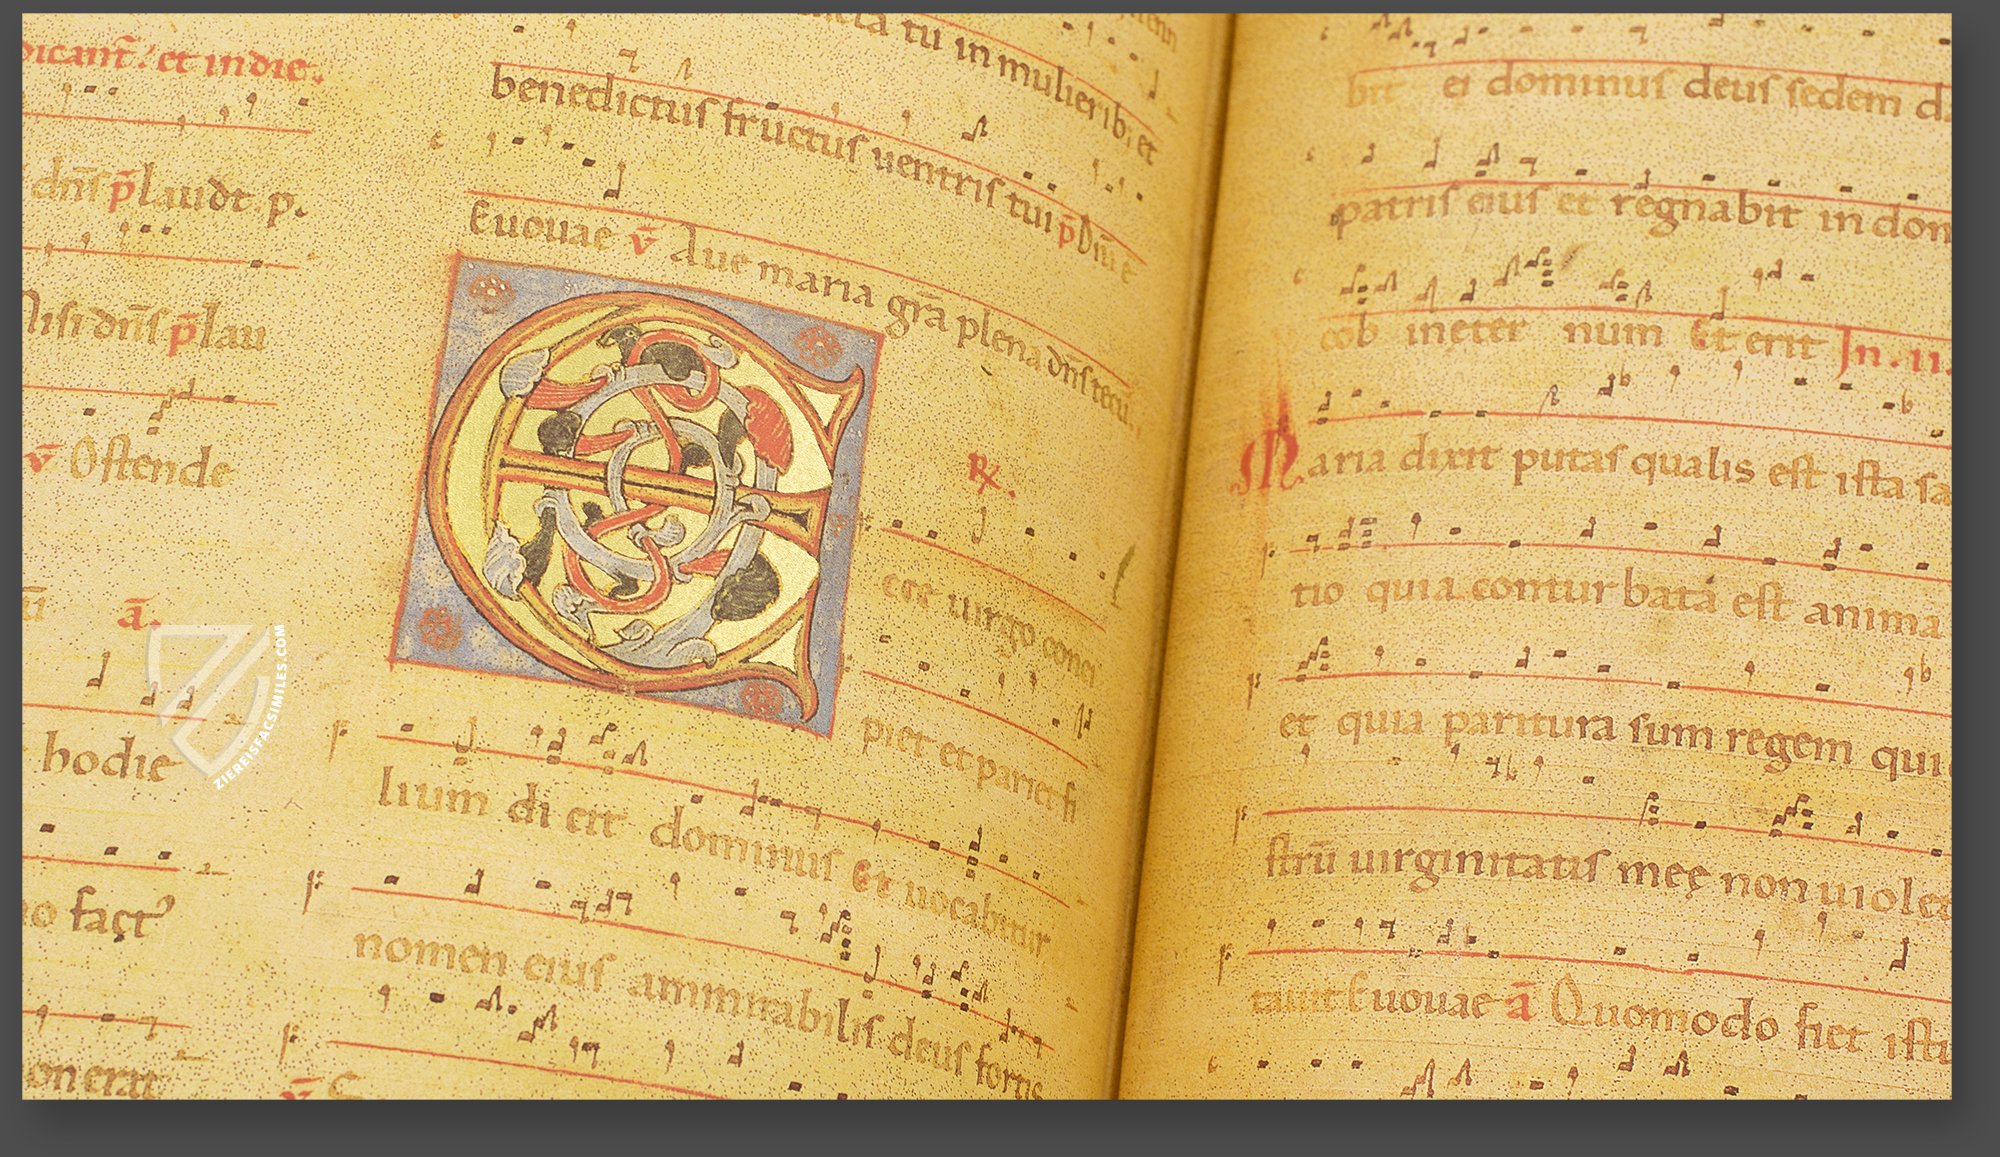 dicant̄. et in die.
dn̄s p̄ laudt p.
Nisi dn̄s p̄ lau
v̄ Ostende
ā.
hodie
facṭ
onerat
tu in mulieribꝫ et
benedictus fructus uentris tui p̄ Dn̄i ē
Euouae v̄ Aue maria gr̄a plena dn̄s tecū.
R.
cce uirgo conci
piet et pariet fi
lium di cit dominus Et uocabitur
nomen eius ammirabilis deus fortis
v̄ S
bit ei dominus deus sedem da
patris eius et regnabit in dom
cob ineter num Et erit In. ii.
Maria dixit putas qualis est ista sa
tio quia conturbata est anima
et quia paritura sum regem qui
strū uirginitatis meę non uiolet
tauit Euouae ā Quomodo fiet istu
ZIEREISFACSIMILES.COM